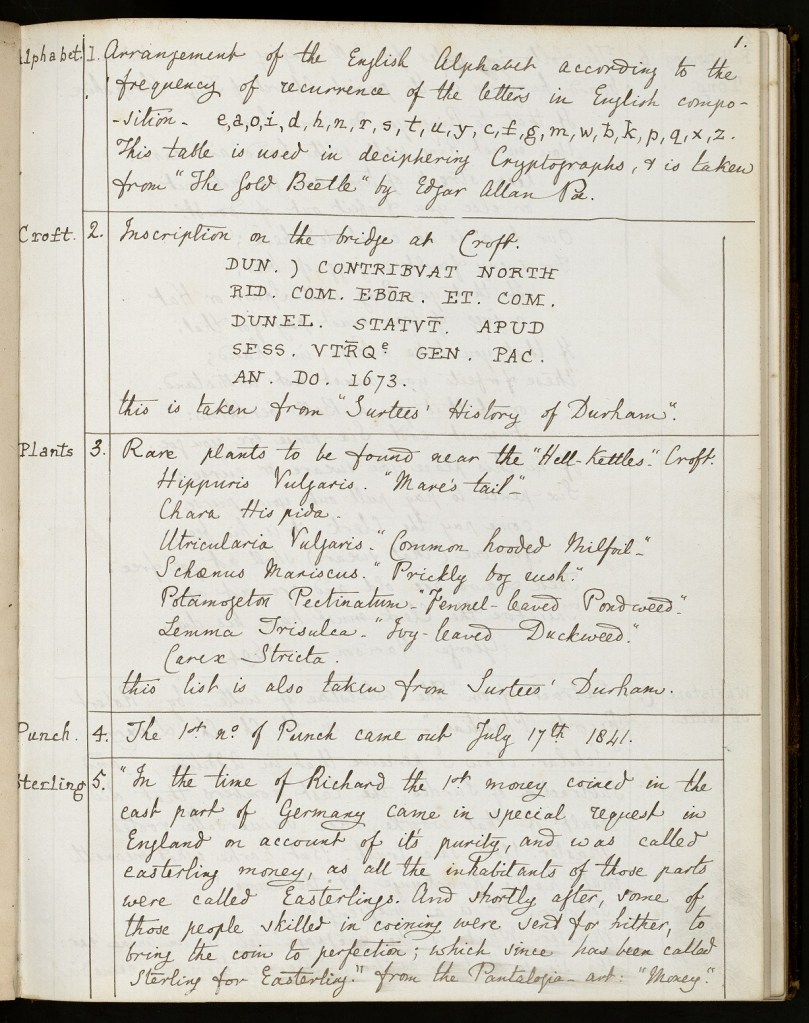 1.
Alphabet. 1. Arrangement of the English Alphabet according to the
frequency of recurrence of the letters in English compo-
-sition - e,a,o,i,d,h,n,r,s,t,u,y,c,f,g,m,w,b,k,p,q,x,z.
This table is used in deciphering Cryptographs, & is taken
from "The Gold Beetle" by Edgar Allan Poe.
Croft. 2. Inscription on the bridge at Croft.
DUN. ) CONTRIBVAT NORTH
RID. COM. EBŌR. ET. COM.
DUNEL. STATVT̄. APUD
SESS. VTR̄Qᵉ GEN. PAC.
AN. DO. 1673.
this is taken from "Surtees' History of Durham".
Plants 3. Rare plants to be found near the "Hell-Kettles". Croft.
Hippuris Vulgaris. "Mare's tail"-
Chara Hispida.
Utricularia Vulgaris. "Common hooded Milfoil"-
Schœnus Mariscus. "Prickly bog rush".
Potamogeton Pectinatum - "Fennel-leaved Pondweed".
Lemma Trisulca - "Ivy-leaved Duckweed".
Carex Stricta.
this list is also taken from Surtees' Durham.
Punch. 4. The 1st no. of Punch came out July 17th 1841.
Sterling 5. "In the time of Richard the 1st money coined in the
east part of Germany came in special request in
England on account of it's purity, and was called
easterling money, as all the inhabitants of those parts
were called Easterlings. And shortly after, some of
those people skilled in coining were send for hither, to
bring the coin to perfection; which since has been called
Sterling for Easterling." from the Pantalogia - art: "Money".